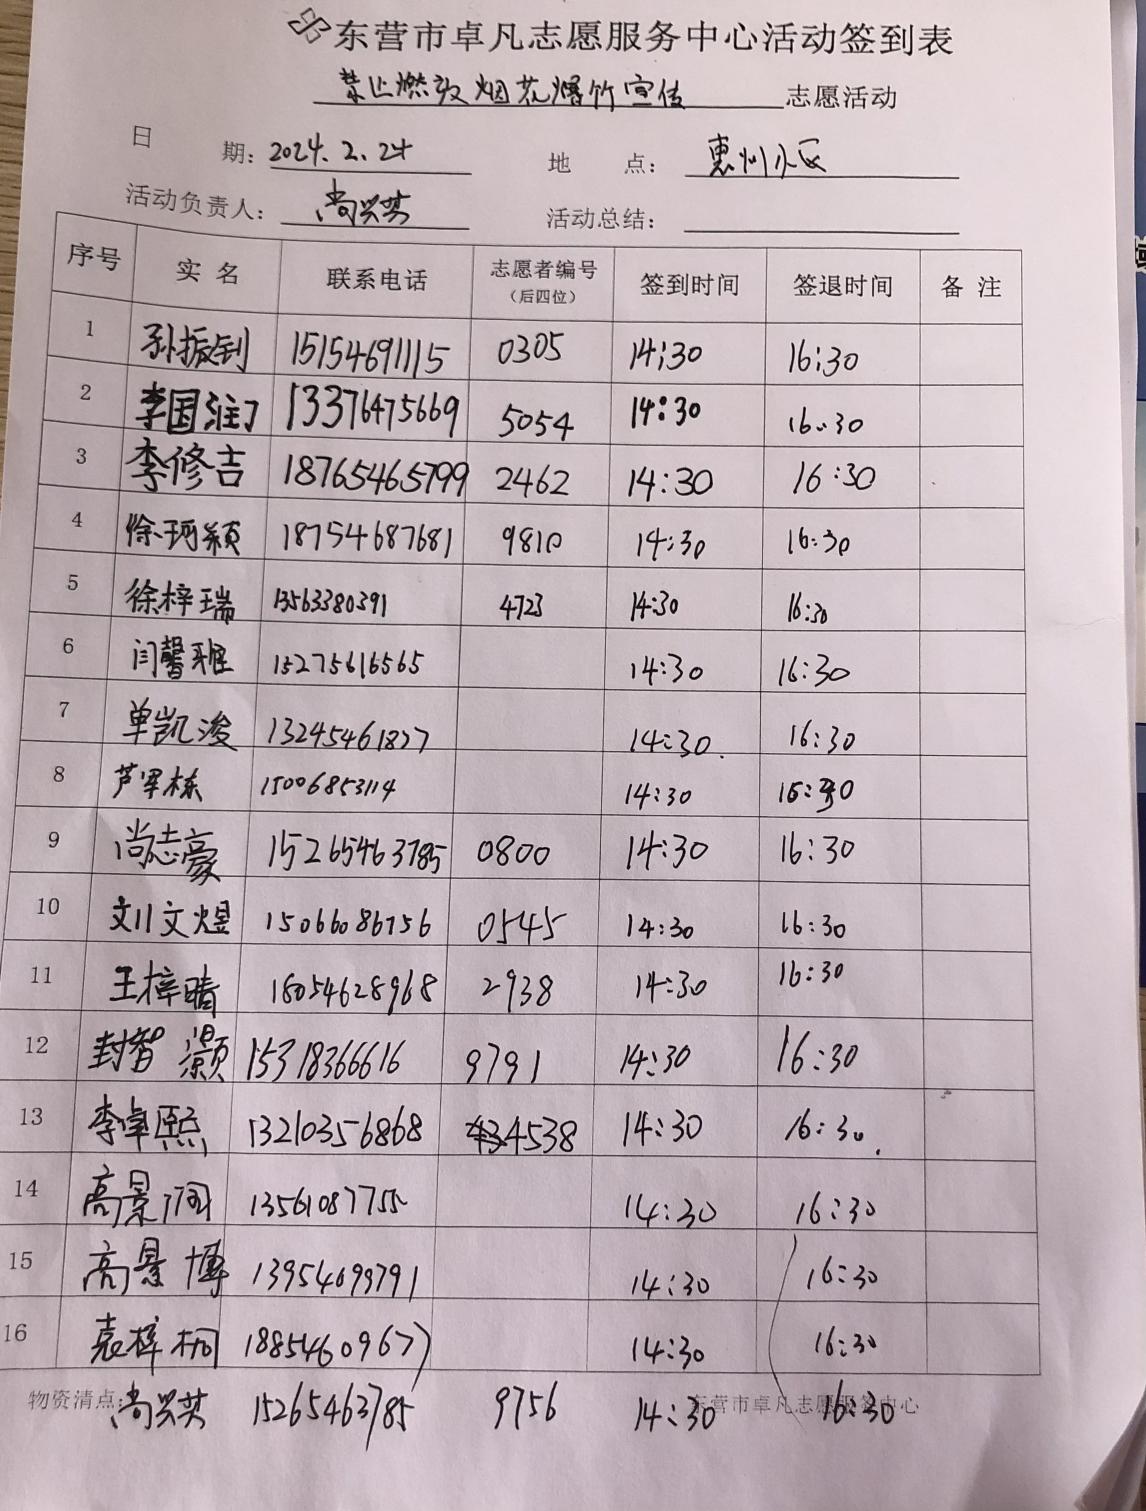 东营市卓凡志愿服务中心活动签到表
禁止燃放烟花爆竹宣传 志愿活动
日 期：2024.2.24 地 点：惠州小区
活动负责人：尚兴英 活动总结：
序号 实名 联系电话 志愿者编号（后四位） 签到时间 签退时间 备注
1 孙振钊 15154691115 0305 14:30 16:30
2 李国 13376475669 5054 14:30 16:30
3 李修吉 18765465799 2462 14:30 16:30
4 徐珂颖 18754687681 9810 14:30 16:30
5 徐梓瑞 13563380391 4723 14:30 16:30
6 闫馨 15275616565 14:30 16:30
7 单凯浚 13245461827 14:30 16:30
8 芦军栋 15006853114 14:30 16:30
9 尚志豪 15265463785 0800 14:30 16:30
10 刘文煜 15066086756 0545 14:30 16:30
11 王梓晴 18054628968 2938 14:30 16:30
12 封智灏 15318366616 9791 14:30 16:30
13 李卓熙 13210356868 4538 14:30 16:30
14 高景润 13561087755 14:30 16:30
15 高景博 13954699791 14:30 16:30
16 袁梓桐 18854609677 14:30 16:30
物资清点： 东营市卓凡志愿服务中心
尚兴英 15265463785 9756 14:30 16:30